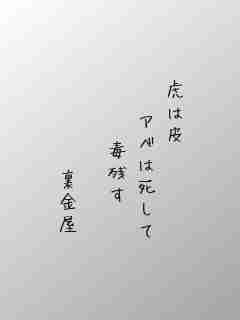 虎は皮
アベは死して
毒残す
裏金屋